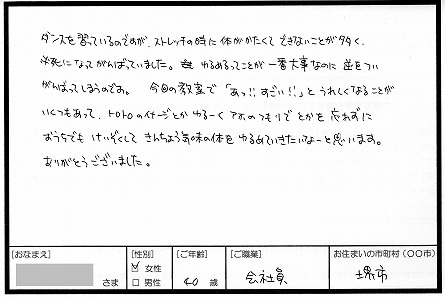 ダンスを習っているのですが、ストレッチの時に体がかたくてできないことが多く、
必死になってがんばっていました。ゆるめるってことが一番大事なのに逆をつい
がんばってしまうのです。今回の教室で「あっ!!すごい!!」とうれしくなることが
いくつもあって、トロトロのイメージとかゆるーくアホのつもりでとかを忘れずに
おうちでもけいぞくしてきんちょう気味の体をゆるめていきたいなーと思います。
ありがとうございました。
[おなまえ] [性別] [ご年齢] [ご職業] お住まいの市町村(〇〇市)
さま ☑ 女性 □ 男性 40 歳 会社員 堺市